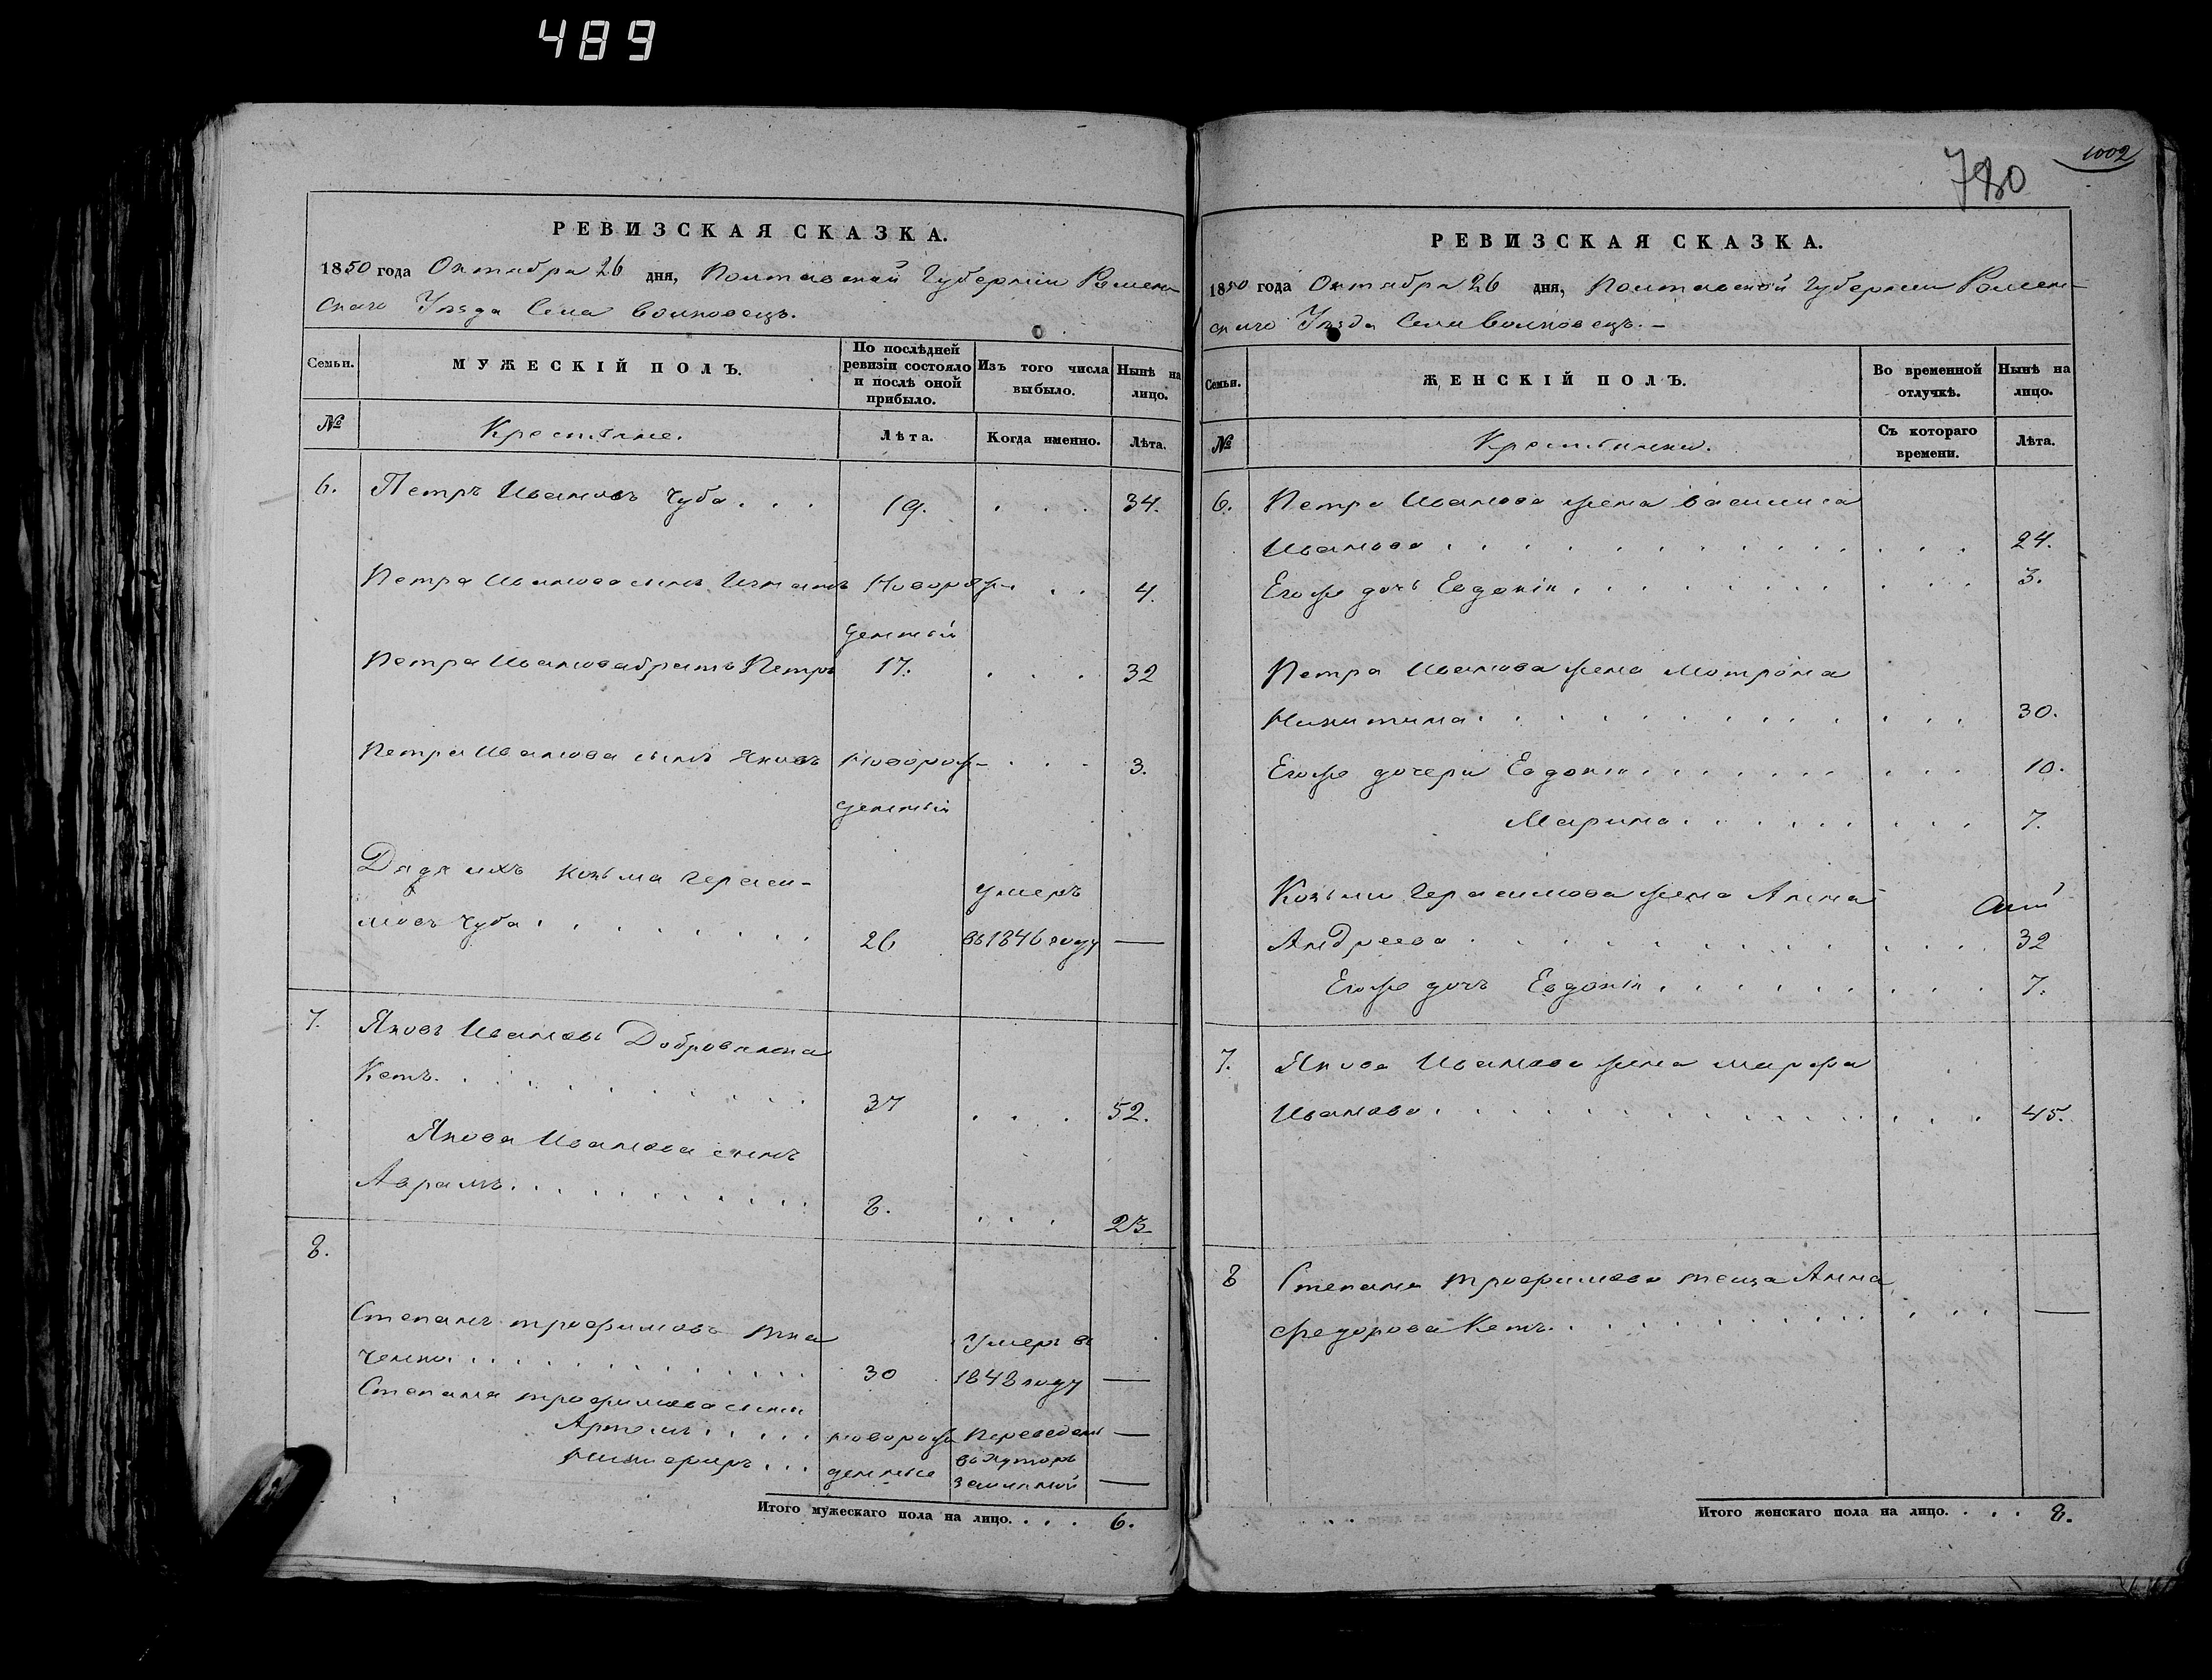 489
РЕВИЗСКАЯ СКАЗКА.
1850 года Октября 26 дня, Полтавской Губернии Ромен-
скаго Уезда Села Волковецъ.
Семьи.
МУЖЕСКІЙ ПОЛЪ.
По послѣдней
ревизіи состояло
и послѣ оной
прибыло.
Изъ того числа
выбыло.
Нынѣ на
лицо.
№
Крестьяне.
Лѣта.
Когда именно.
Лѣта.
6. Петръ Ивановъ Чуба . . . 19. . . . 34.
Петра Иванова сынъ Новорож- . . 4.
денный
Петра Иванова братъ Петръ 17. . . . 32
Петра Иванова сынъ Яковъ Новорож- . . . 3.
денный
Дядя ихъ Козьма Гераси-
умеръ
мовъ Чуба . . . . . . . . 26 въ 1846 году —
7. Яковъ Ивановъ Добровилна
Кетъ. . . . . . . . . . . 37 . . . 52.
Якова Иванова сынъ
Аврамъ. . . . . . . . . . . 8. . . . 23
8.
Степанъ трофимовъ Тка
Умеръ въ
ченко. . . . . . . . . . . . 30 1848 году —
Степана трофимова сыны
Артемъ . . . . . новорож Переведены —
Никифоръ . . . денные въ хуторъ
—
Итого мужескаго пола на лицо. . . . 6.
1002
780
РЕВИЗСКАЯ СКАЗКА.
1850 года Октября 26 дня, Полтавской Губернии Ромен-
скаго Уезда Села Волковецъ. —
Семьи.
ЖЕНСКІЙ ПОЛЪ.
Во временной
отлучкѣ.
Нынѣ на
лицо.
№
Крестьянки.
Съ котораго
времени.
Лѣта.
6. Петра Иванова жена Василиса
Иванова . . . . . . . . . . . . . 24.
Егоже дочь Евдокія . . . . . . . . . 3.
Петра Иванова жена Мотрона
Никитина . . . . . . . . . . . . . 30.
Егоже дочери Евдокія . . . . . . . . . 10.
Марина . . . . . . . . 7.
Козьмы Герасимова жена Анна
Андреева . . . . . . . . . . . . . 32
Егоже дочь Евдокія . . . . . . . . . 7.
7. Якова Иванова жена марфа
Иванова . . . . . . . . . . . . . . 45.
8 Степана трофимова теща Анна
федорова Кетъ . . . . . . . . . . . . —
Итого женскаго пола на лицо. . . . 8.